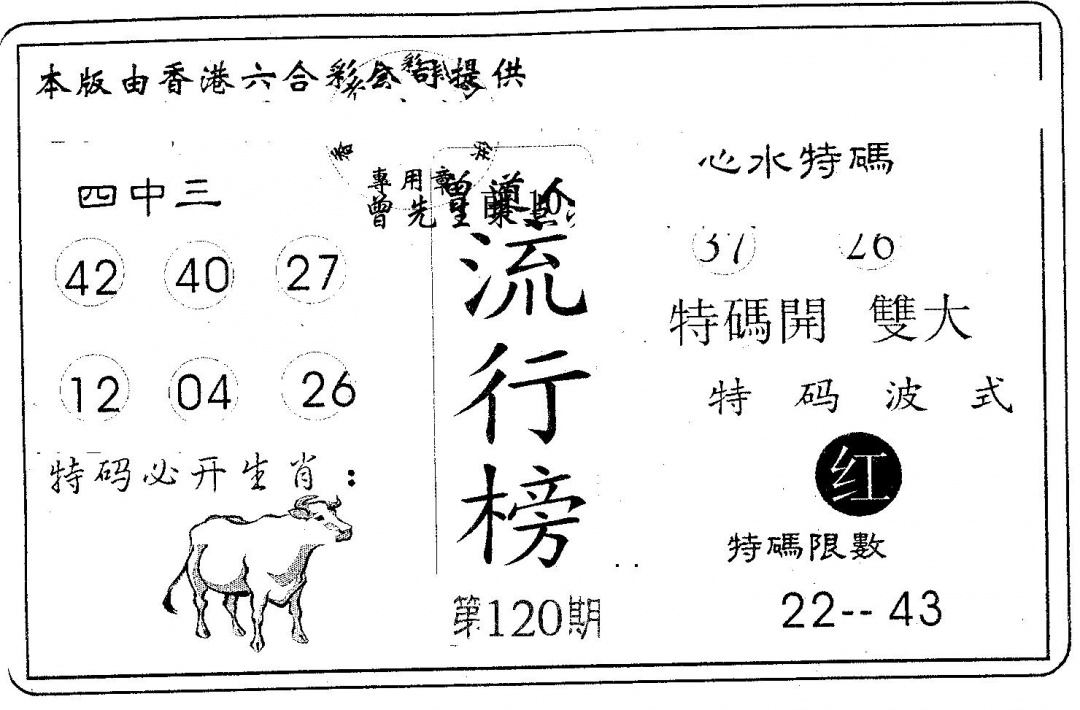 本版由香港六合彩公司提供
四中三
42 40 27
12 04 26
特码必开生肖：
專用章
曾先生
曾道人
流行榜
第120期
心水特碼
37 26
特碼開 雙大
特码波式
红
特碼限數
22-- 43